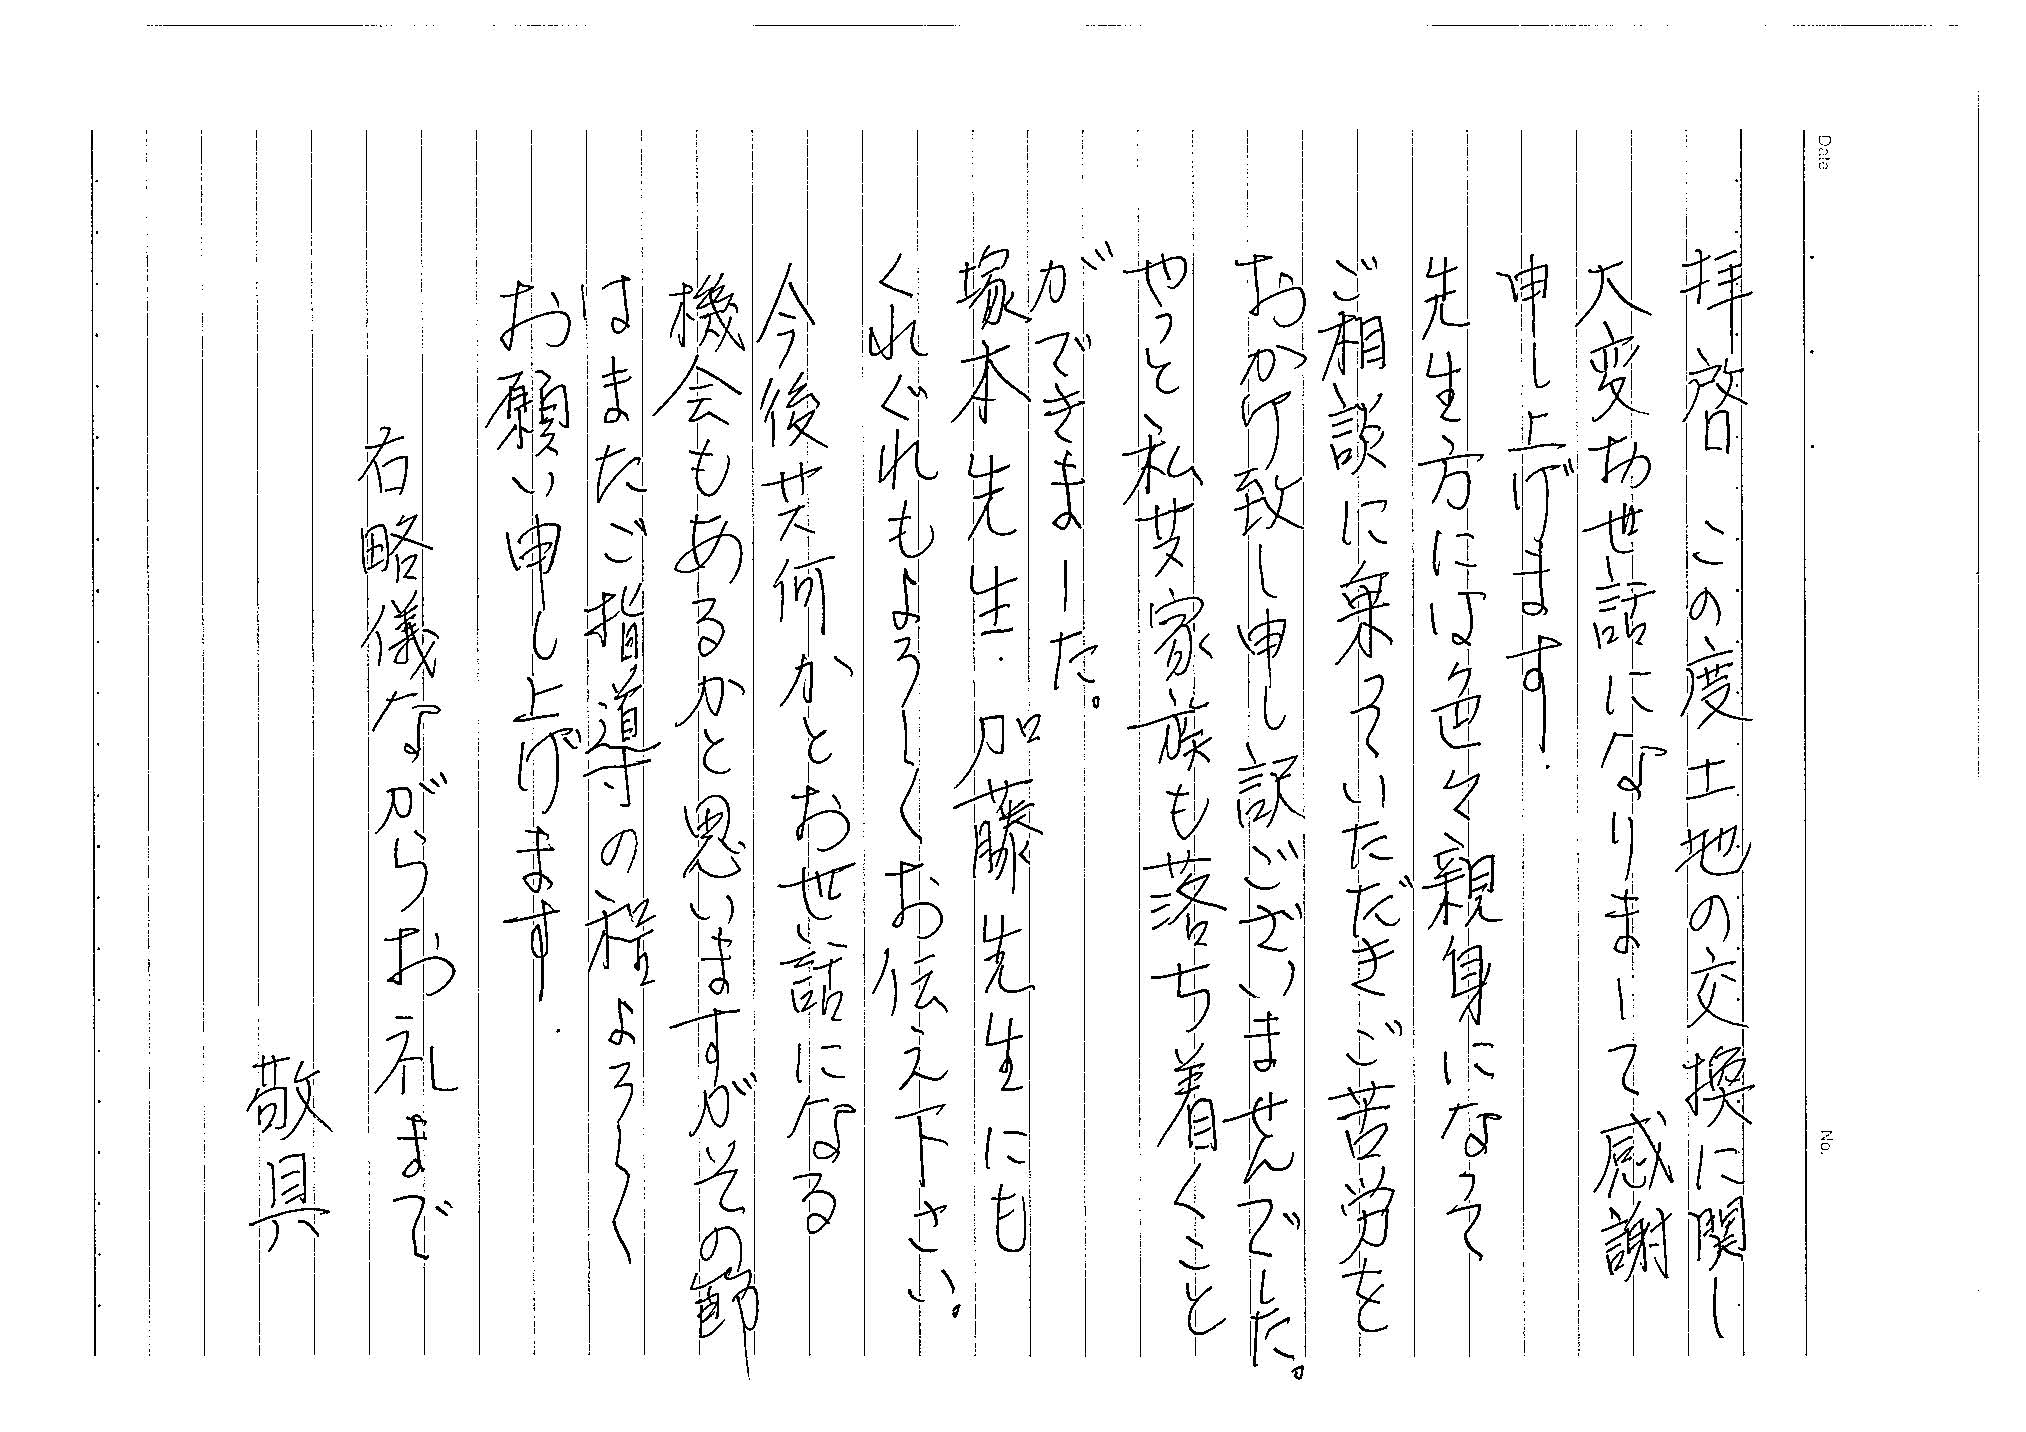 Date
No.
拝啓 この度土地の交換に関し
大変お世話になりまして感謝
申し上げます.
先生方には色々親身になって
ご相談に乗っていただきご苦労を
おかけ致し申し訳ございませんでした。
やっと私共家族も落ち着くこと
ができました。
塚本先生. 加藤先生にも
くれぐれもよろしくお伝え下さい。
今後共何かとお世話になる
機会もあるかと思いますがその節
はまたご指導の程よろしく
お願い申し上げます.
右略儀ながらお礼まで
敬具